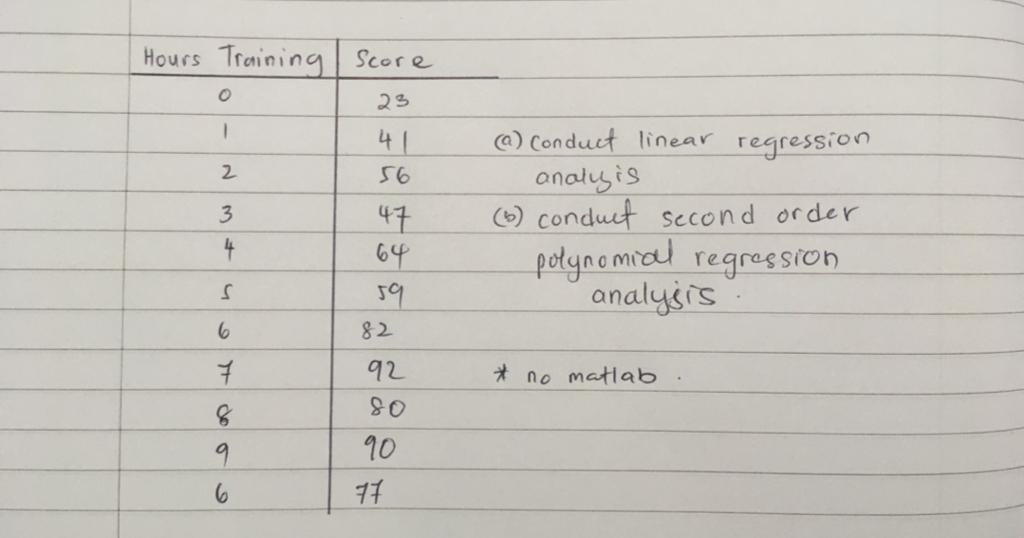 Hours Training Score
0 23
1 41 (a) conduct linear regression
2 56 analysis
3 47 (b) conduct second order
4 64 polynomial regression
5 59 analysis.
6 82
7 92 * no matlab.
8 80
9 90
6 77